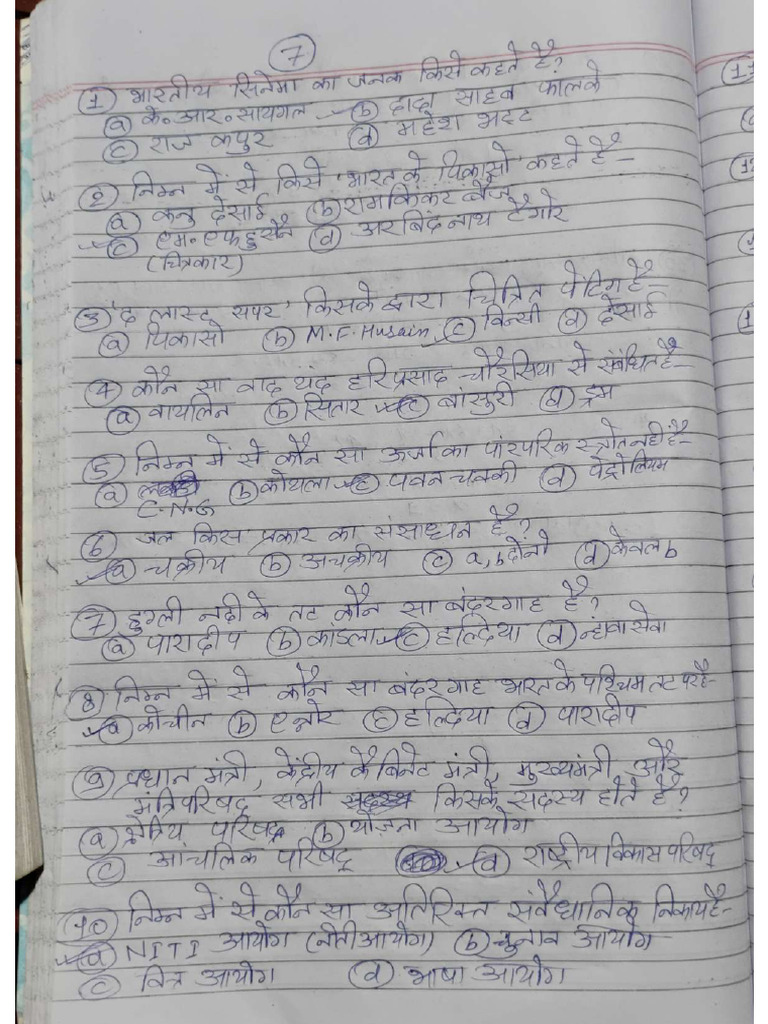 7
① भारतीय सिनेमा का जनक किसे कहते है?
ⓐ के॰आर॰सायगल ⓑ दादा साहब फालके
ⓒ राज कपुर ⓓ महेश भट्ट
② निम्न में से किसे 'भारत के पिकासो' कहते है-
ⓐ कनु देसाई ⓑ रामकिंकर बैज
ⓒ एम॰एफ हुसैन ⓓ अरबिंद नाथ टैगोर
(चित्रकार)
③ 'द लास्ट सपर' किसके द्वारा चित्रित पेंटिग है-
ⓐ पिकासो ⓑ M.F. Husain ⓒ विन्सी ⓓ देसाई
④ कौन सा वाद्य यंद हरिप्रसाद चौरसिया से संबंधित है-
ⓐ वायलिन ⓑ सितार ⓒ बांसुरी ⓓ ड्रम
⑤ निम्न में से कौन सा ऊर्जा का पांरपरिक स्त्रोत नहीं है-
ⓐ ⓑ कोयला ⓒ पवन चक्की ⓓ पेट्रोलियम
C.N.G
⑥ जल किस प्रकार का संसाधन है?
ⓐ चक्रीय ⓑ अचक्रीय ⓒ a, b दोनो ⓓ केवल b
⑦ हुगली नदी के तट कौन सा बंदरगाह है?
ⓐ पारादीप ⓑ कांडला ⓒ हल्दिया ⓓ न्हावा सेवा
⑧ निम्न में से कौन सा बंदरगाह भारत के पश्चिम तट पर है-
ⓐ कोचीन ⓑ एन्नोर ⓒ हल्दिया ⓓ पारादीप
⑨ प्रधान मंत्री, केंद्रीय कैबिनेट मंत्री, मुख्यमंत्री और
मंत्रिपरिषद् सभी किसके सदस्य होते है?
ⓐ क्षेत्रिय परिषद् ⓑ योजना आयोग
ⓒ आंचलिक परिषद् ⓓ राष्ट्रीय विकास परिषद्
⑩ निम्न में से कौन सा अतिरिक्त संवैधानिक निकाय है-
ⓐ NITI आयोग (नीती आयोग) ⓑ चुनाव आयोग
ⓒ वित्त आयोग ⓓ भाषा आयोग